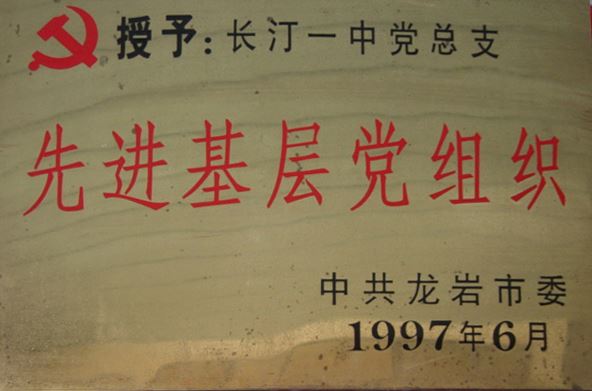 授予:长汀一中党总支
先进基层党组织
中共龙岩市委
1997年6月